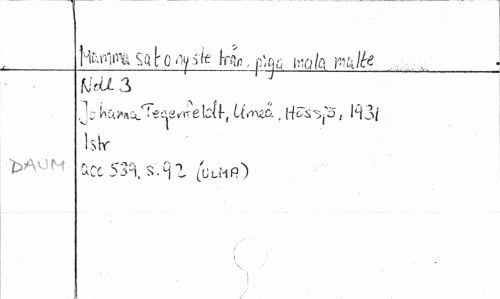 Mamma sat o nyste trån, piga mala malte
Noll 3
Johanna Tegenfeldt, Umeå, Hössjö, 1931
1 str
DAUM acc 539, s. 92 (ULMA)